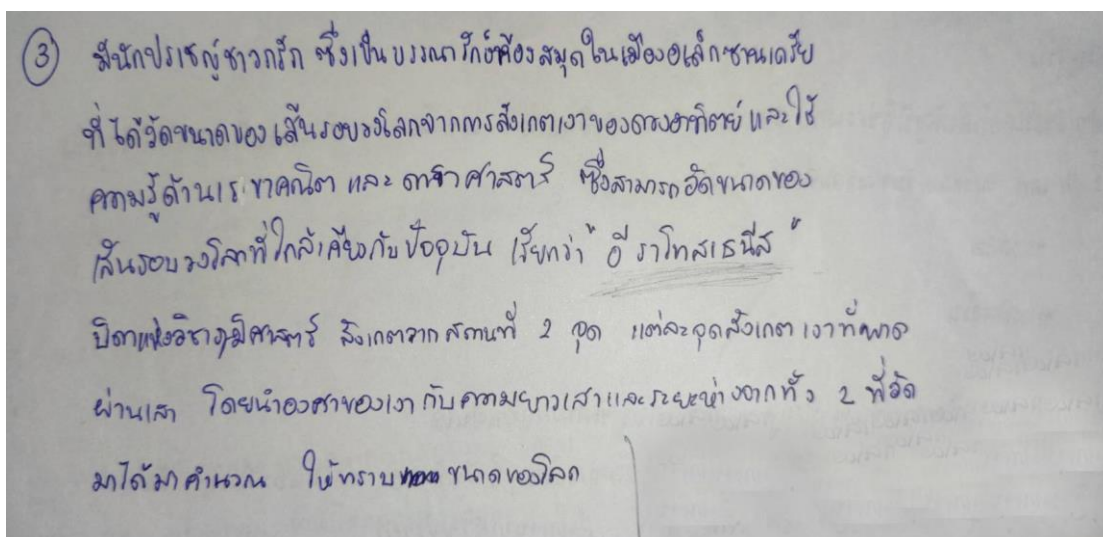 ③ มีนักปราชญ์ชาวกรีก ซึ่งเป็นบรรณารักษ์ห้องสมุดในเมืองอเล็กซานเดรีย
ที่ได้วัดขนาดของเส้นรอบวงโลกจากการสังเกตเงาของดวงอาทิตย์ และใช้
ความรู้ด้านเรขาคณิต และ ดาราศาสตร์ ซึ่งสามารถวัดขนาดของ
เส้นรอบวงโลกที่ใกล้เคียงกับปัจจุบัน เรียกว่า "อีราโทสเธนีส"
บิดาแห่งวิชาภูมิศาสตร์ สังเกตจากสถานที่ 2 จุด แต่ละจุดสังเกตเงาที่พาด
ผ่านเสา โดยนำองศาของเงากับความยาวเสาและระยะห่างจากทั้ง 2 ที่วัด
มาได้มาคำนวณ ให้ทราบขนาดของโลก